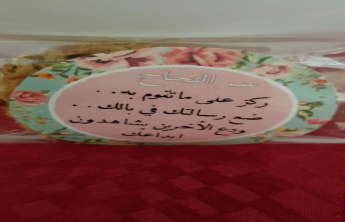 سر النجاح
ركز على ما تقوم به..
ضع رسالتك في بالك..
ودع الآخرين يشاهدون
ابداعك